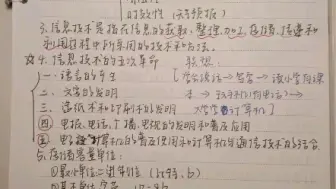 时效性(天气预报)
3.信息技术是指在信息的获取、整理、加工、存储、传递和
利用过程中所采用的技术和方法。
☆4.信息技术的五次革命 联想:
一、语言的产生
二、文字的发明
三、造纸术和印刷术的发明
四、电报、电话、广播、电视的发明和普及应用
五、电子计算机的普及使用和计算机与通信技术的结合
5.存储容量单位:
①最小单位=进制位(比特、b)
②基本单位字节